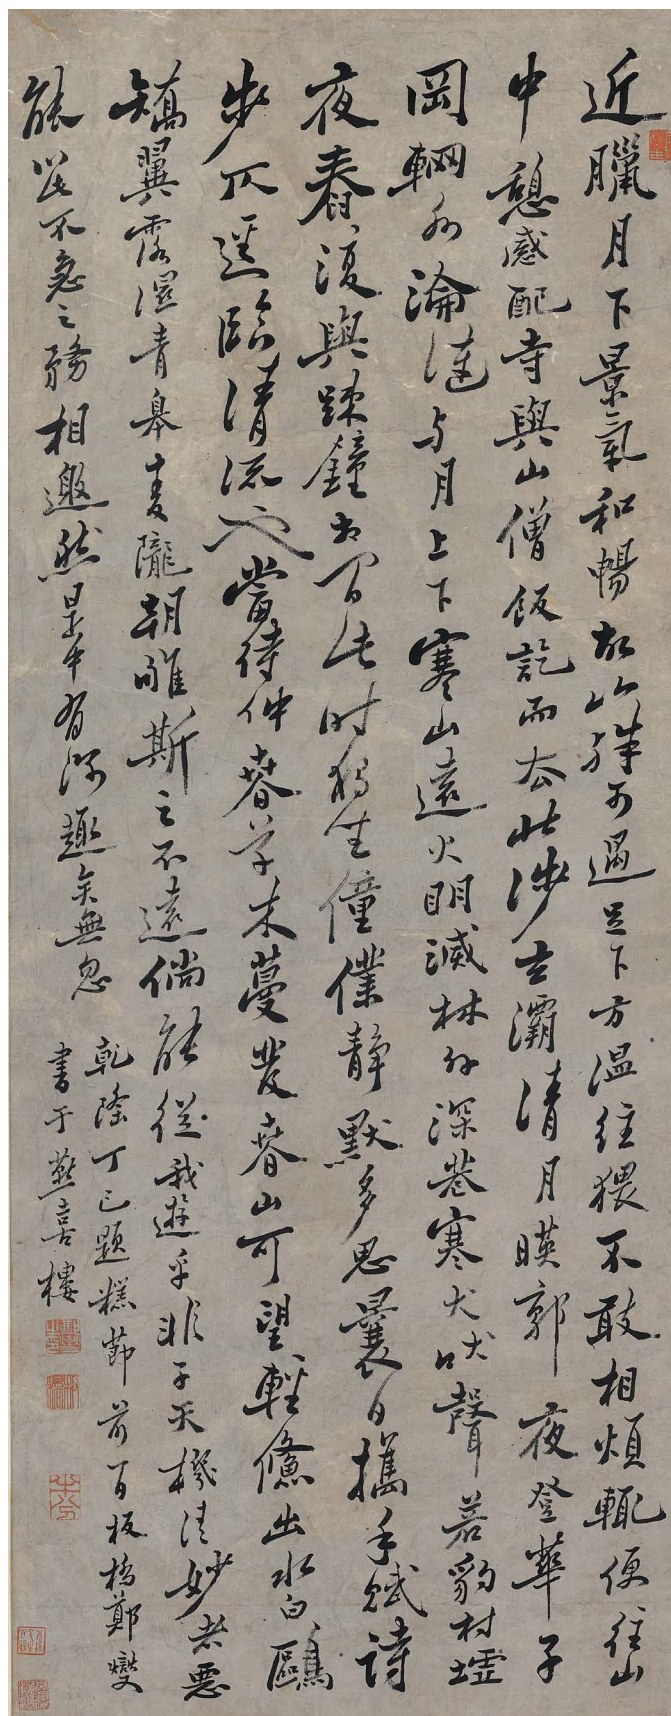 近臘月下景氣和暢故山殊可過足下方温经猥不敢相煩輒便往山
中憩感配寺與山僧飯訖而去北涉玄灞清月暎郭夜登華子
岡輞水淪漣与月上下寒山遠火明滅林外深巷寒犬吠聲若豹村墟
夜舂復與疎鐘相間此時獨坐僮僕静默多思曩日攜手賦詩
步仄逕臨清流也當待仲春草木蔓發春山可望輕鯈出水白鷗
矯翼露溼青皋麥隴朝雊斯之不遠倘能從我遊乎非子天機清妙者惡
能以此不急之務相邀然是中有深趣矣無忽
乾隆丁巳題糕節前一日板橋鄭燮
書于燕喜樓